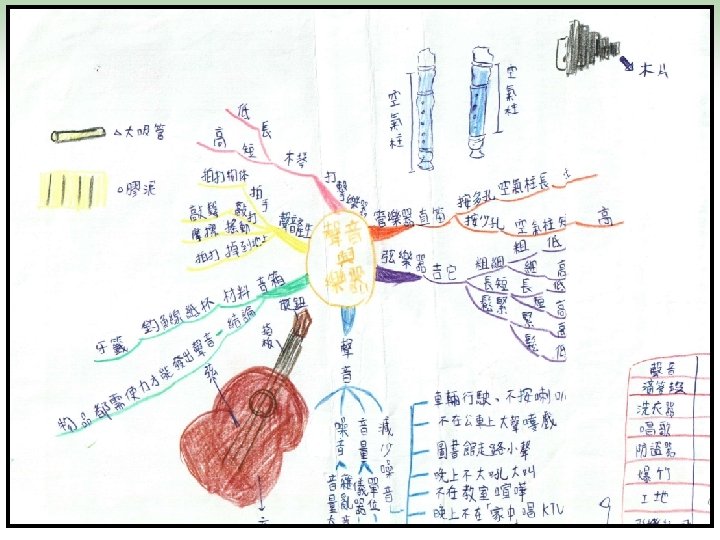 聲音
與
樂器
打
擊
樂
器
木琴
長
低
短
高
聲音產生
拍手
拍打物体
敲打
敲擊
摩擦
撥動
拍打
掉到地上
音箱
材料
釣魚線
紙杯
牙籤
結論
物品都需使力才能發出聲音
管樂器
直笛
按多孔
空氣柱長
按少孔
高
弦樂器
吉它
粗細
粗
低
細
高
長短
長
低
短
高
鬆緊
緊
高
鬆
低
聲
音
噪
音
音
量
減
少
噪
音
音
量
雜
亂
儀
器
單
位
車輛行駛、不按喇叭
不在公車上大聲嘻戲
圖書館走路小聲
晚上不大吼大叫
不在教室喧嘩
晚上不在「家中」唱KTV
大吸管
膠泥
空
氣
柱
空
氣
柱
木片
旋鈕
弦
聲音
洗衣器
唱歌
防盜器
爆竹
工地